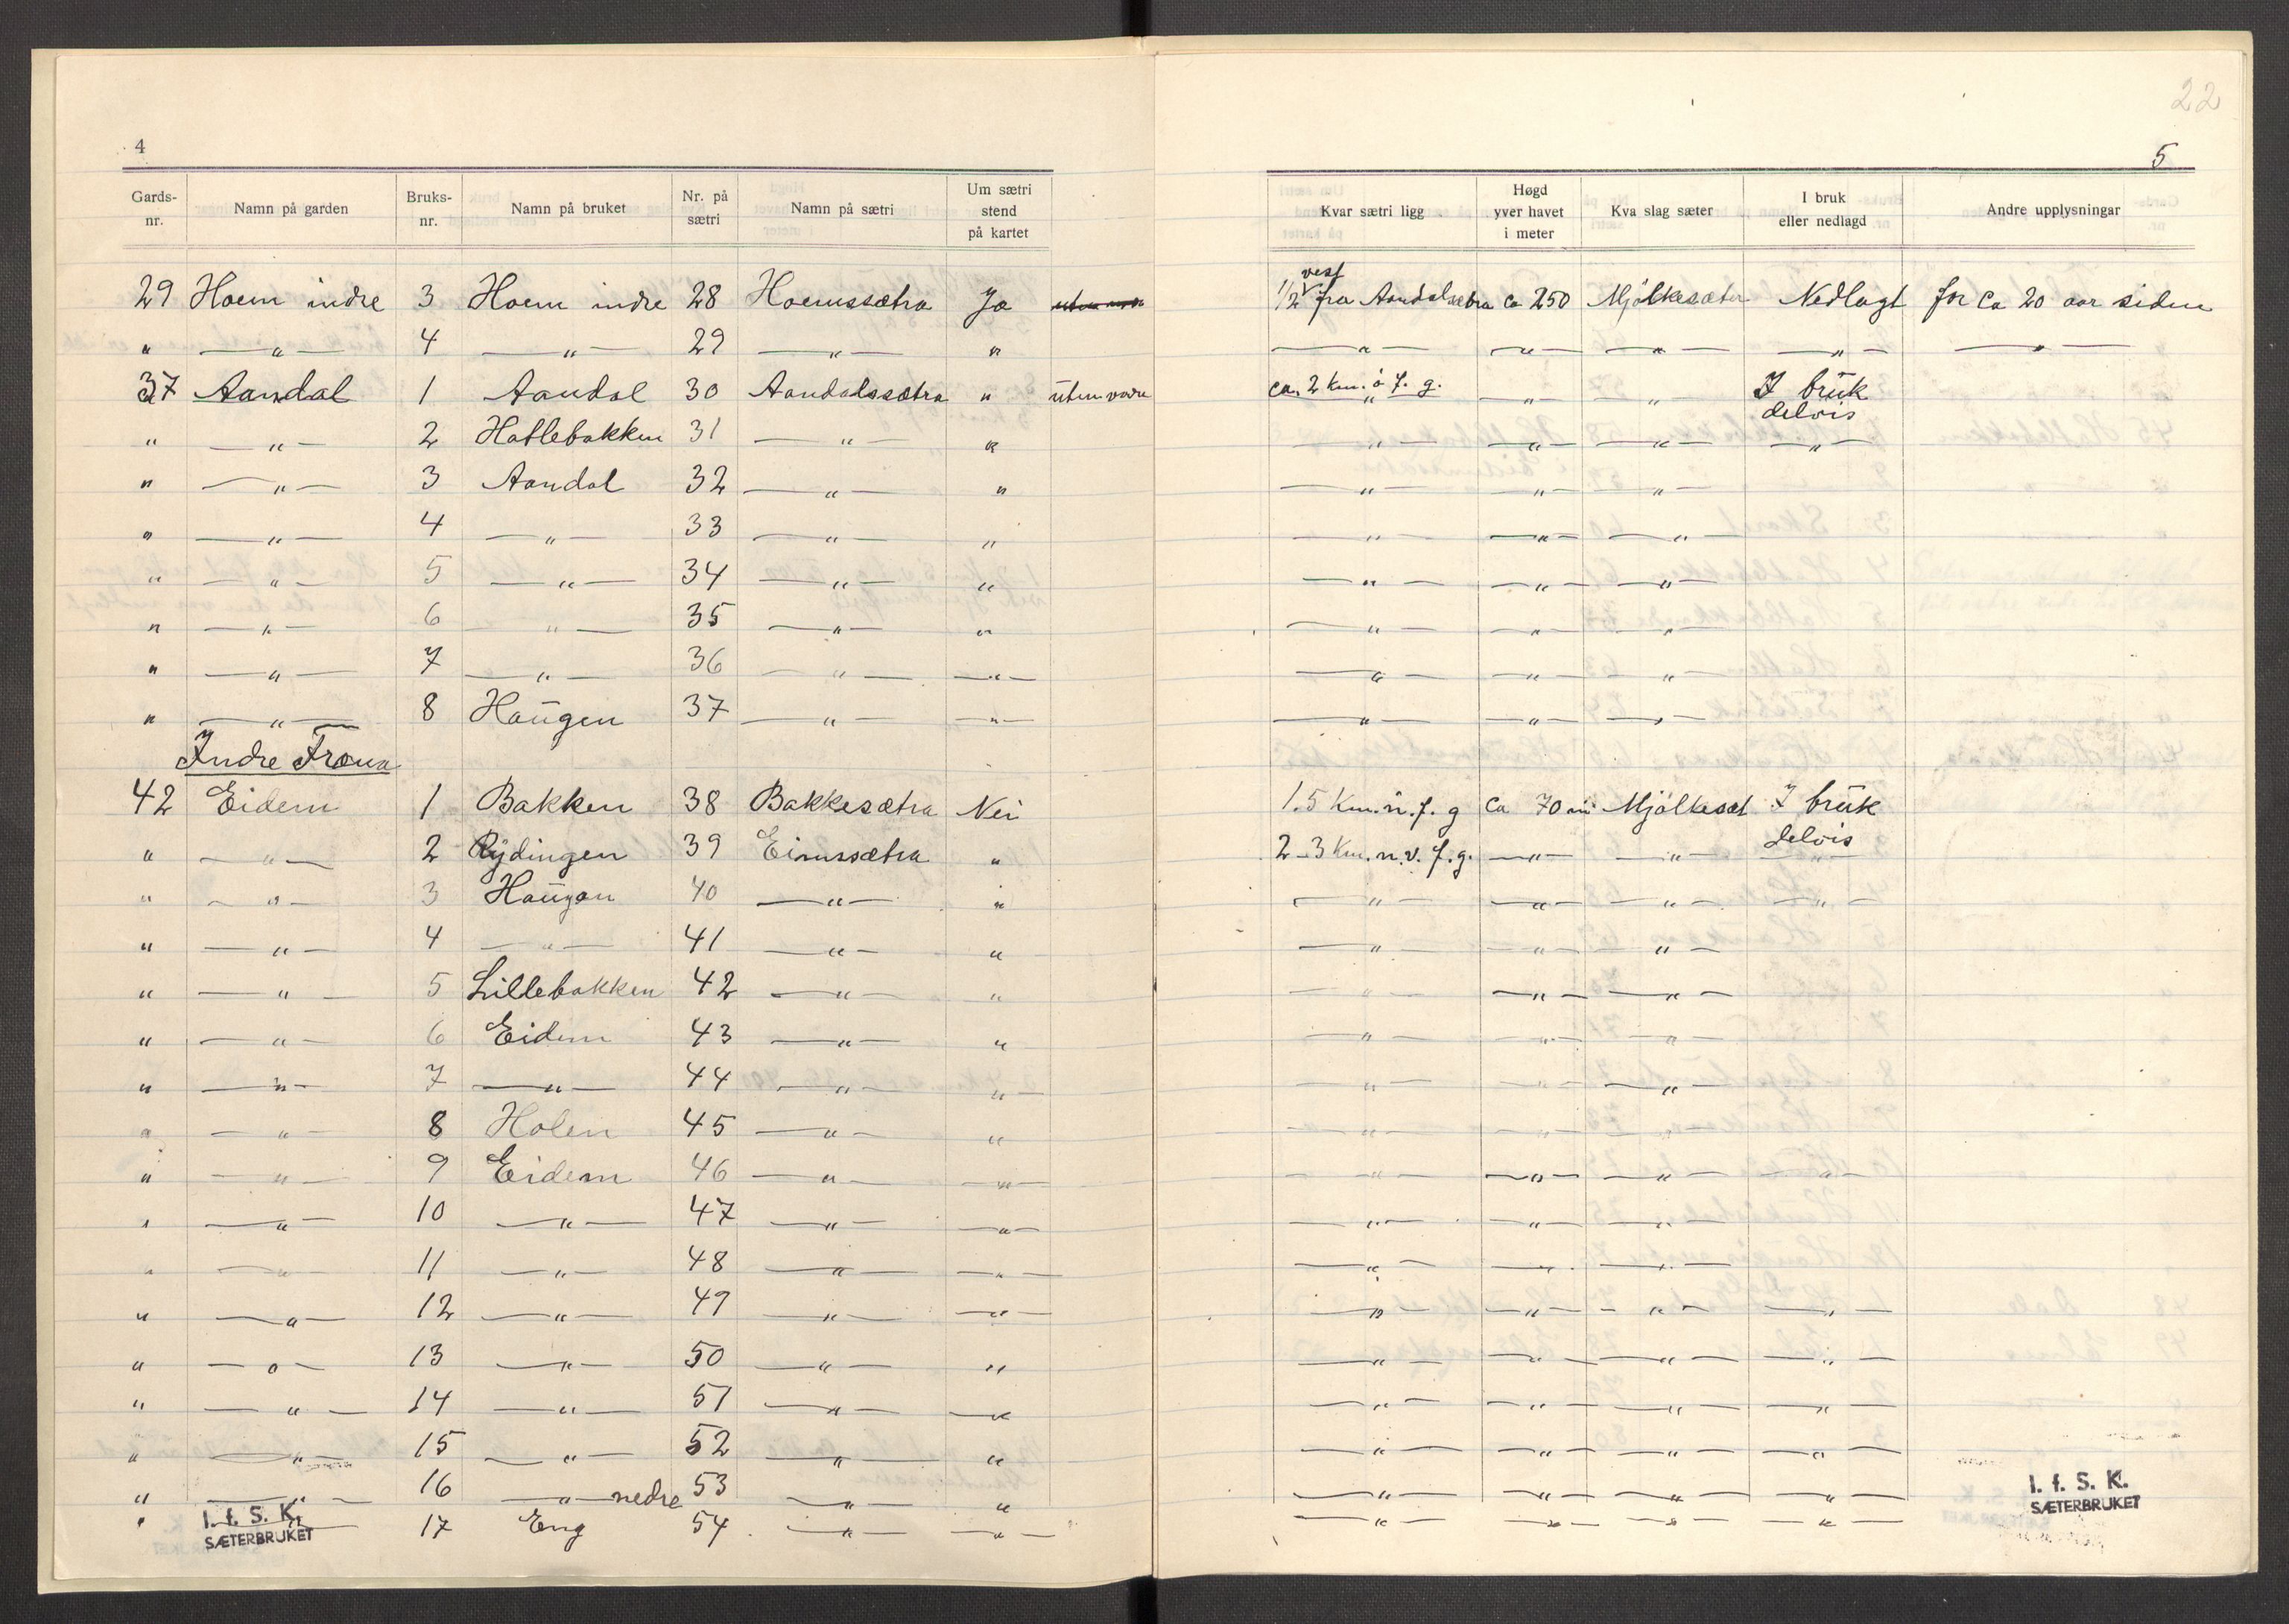 22
4
5
Gards-nr. Namn på garden Bruks-nr. Namn på bruket Nr. på sætri Namn på sætri Um sætri stend på kartet Kvar sætri ligg Høgd yver havet i meter Kva slag sæter I bruk eller nedlagd Andre upplysningar
29 Hoem indre 3 Hoem indre 28 Hoemssætra Ja 1/2 vest fra Aandalsætra ca 250 Mjölkesæter Nedlagt for ca 20 aar siden
" —"— 4 —"— 29 —"— " —"— —"— —"— —"— —"—
37 Aandal 1 Aandal 30 Aandalssætra " uten navn ca. 2 km. ö. f. g. —"— " I brük delvis
" —"— 2 Hatlebakken 31 —"— " —"— —"— —"— —"—
" —"— 3 Aandal 32 —"— " —"— —"— —"—
" —"— 4 —"— 33 —"— " —"— —"— —"—
" —"— 5 —"— 34 —"— " —"— —"— —"—
" —"— 6 —"— 35 —"— " —"— —"— —"—
" —"— 7 —"— 36 —"— —"— —"— —"— —"—
" —"— 8 Haügen 37 —"— —"— —"— —"— —"—
Indre Fræna
42 Eidem 1 Bakken 38 Bakkesætra Nei 1.5 Km. n. f. g ca 70 m Mjölkesæt I brük
" —"— 2 Rÿdingen 39 Eimssætra " 2-3 Km. n.v. f.g. —"— —"— delvis —"—
" —"— 3 Haügen 40 —"— " —"— —"— —"— —"—
" —"— 4 —"— 41 —"— " —"— —"— —"—
" —"— 5 Lillebakken 42 —"— " —"— —"— —"—
" —"— 6 Eidem 43 —"— " —"— —"— —"—
" —"— 7 —"— 44 —"— —"— —"— —"— —"—
" —"— 8 Holen 45 —"— " —"— —"— —"—
" —"— 9 Eidem 46 —"— —"— —"— —"— —"— —"—
" —"— 10 —"— 47 —"— —"— —"— —"— —"—
" —"— 11 —"— 48 —"— —"— —"— —"— —"—
" —"— 12 —"— 49 —"— —"— —"— —"— —"— —"—
" —"— 13 —"— 50 —"— " —"— —"— —"— —"—
" —"— 14 —"— 51 —"— —"— —"— —"— —"— —"—
" —"— 15 —"— 52 —"— " —"— —"— —"— —"—
" —"— 16 —"— nedre 53 —"— " —"— —"— —"— —"—
" —"— 17 Eng 54 —"— —"— —"— —"— —"— —"—
I. f. S. K.
SÆTERBRUKET
I. f. S. K.
SÆTERBRUKET